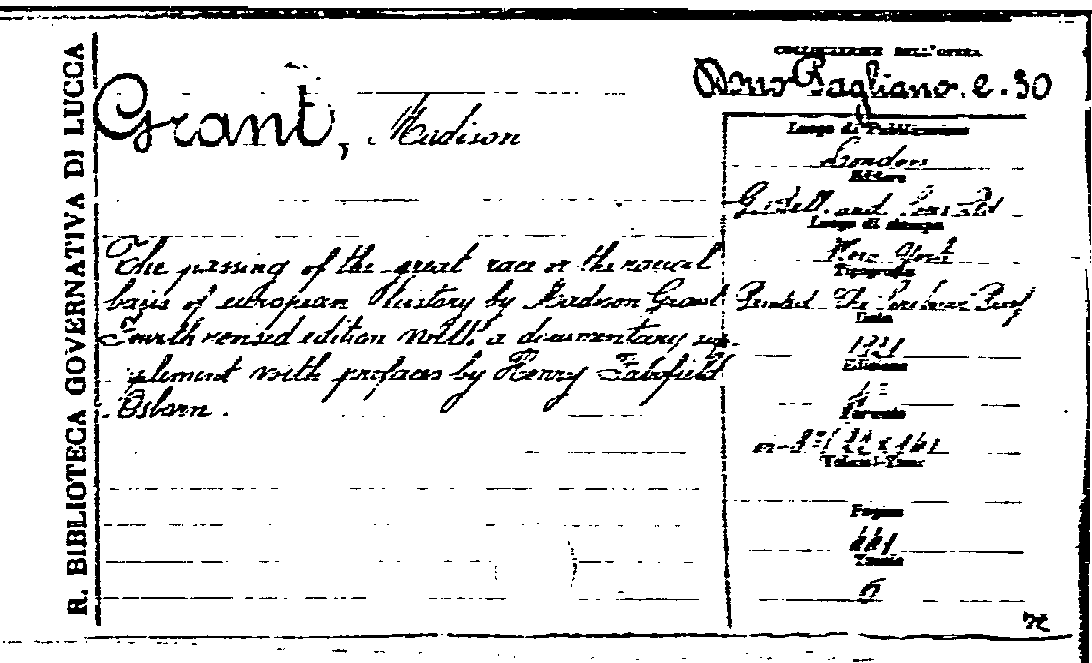 R. BIBLIOTECA GOVERNATIVA DI LUCCA
COLLOCAZIONE DELL'OPERA
Dono Pagliano. e. 30
Grant, Madison
Luogo di Pubblicazione
London
Editore
G. Bell. and Sons Ltd
Luogo di stampa
New York
Tipografia
Printed The Scribner Press
Data
1921
Edizione
4ª
Formato
Volumi-Tomi
Pagine
441
Tavole
6
The passing of the great race or the racial
basis of european history by Madison Grant
Fourth revised edition with a documentary sup-
plement with prefaces by Henry Fairfield
Osborn.